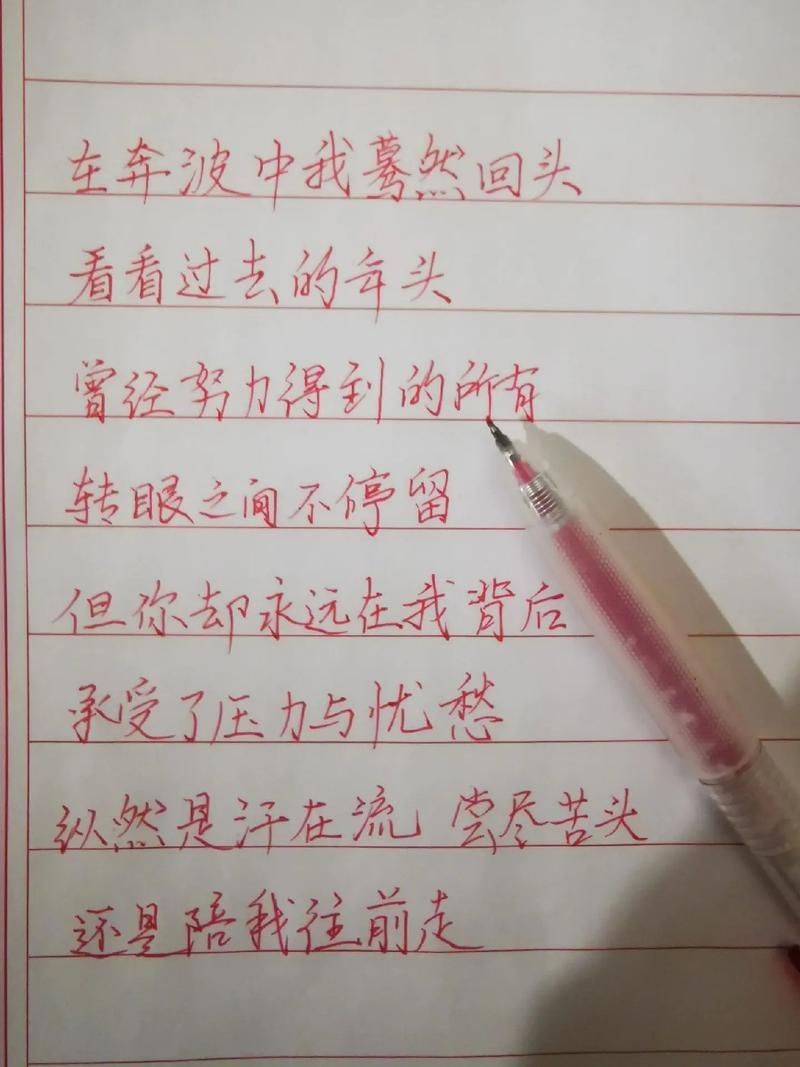 在奔波中我蓦然回头
看看过去的年头
曾经努力得到的所有
转眼之间不停留
但你却永远在我背后
承受了压力与忧愁
纵然是汗在流 尝尽苦头
还是陪我往前走